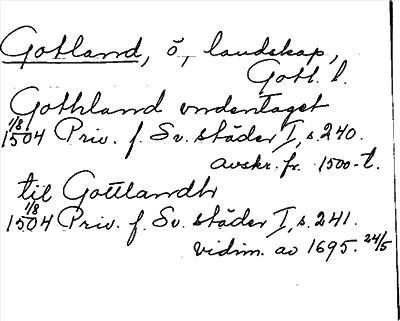 Gotland, ö, landskap,
Gotl. l.
Gothland vndentaget
1/8
1504 Priv. f. Sv. städer I, s. 240.
avskr. fr. 1500-t.
til Gottlandh
1/8
1504 Priv. f. Sv. städer I, s. 241.
vidim. av 1695. 24/5